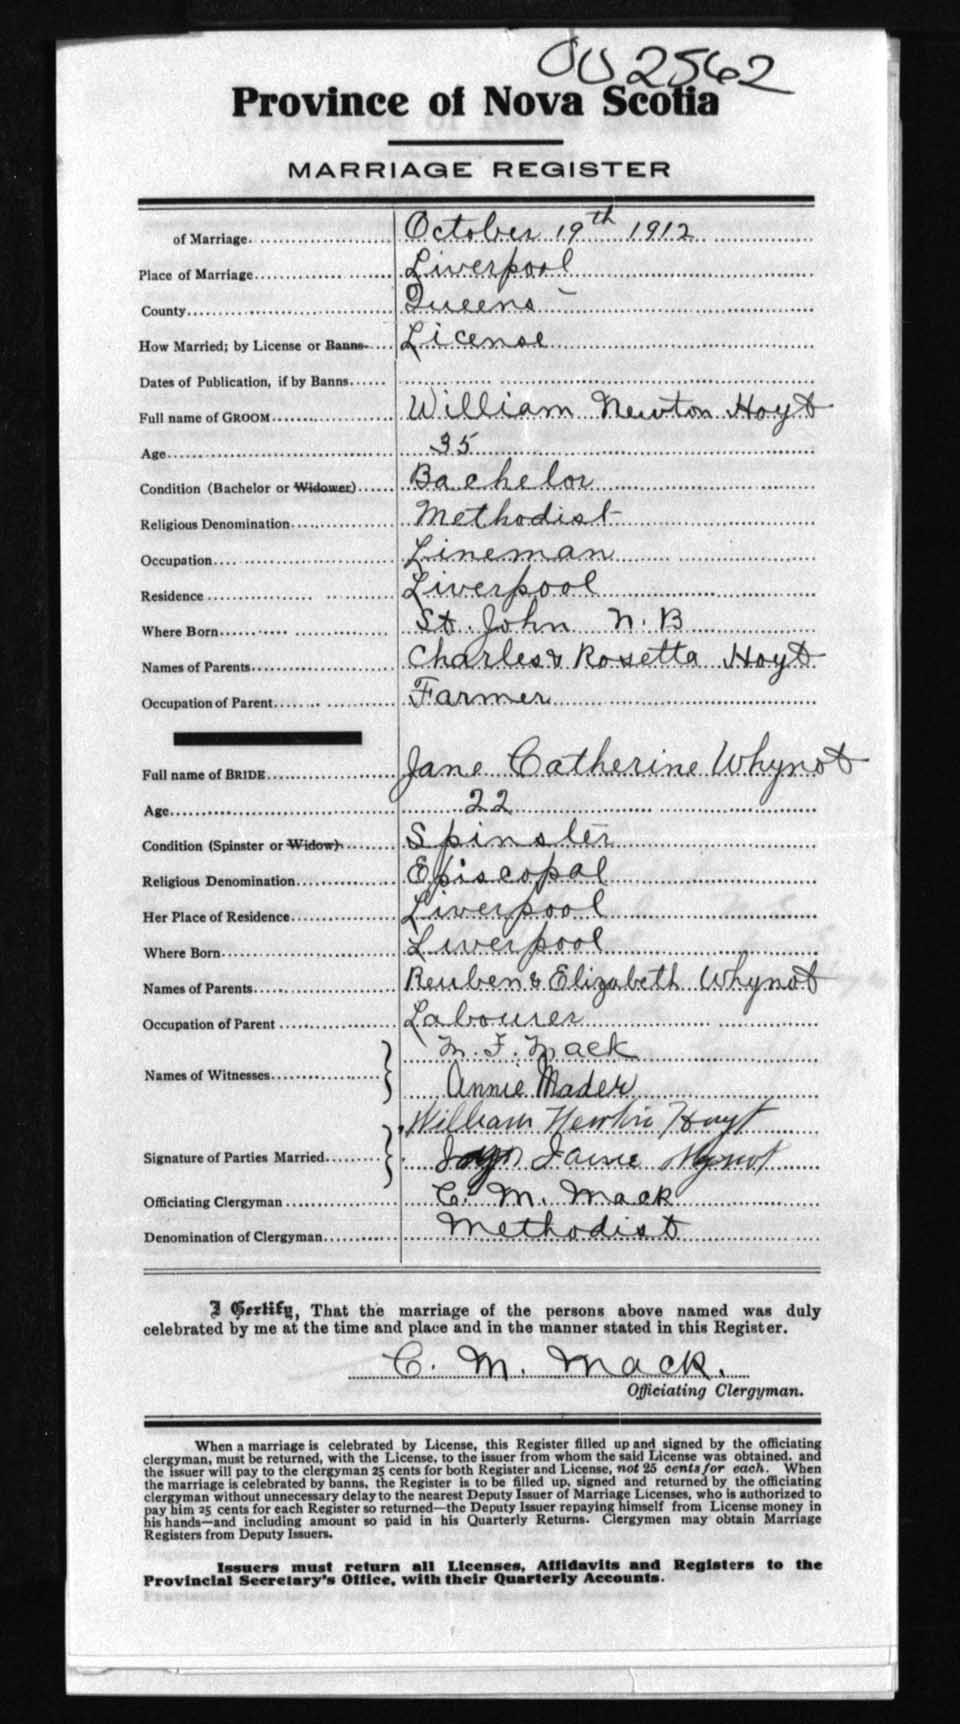 2562
Province of Nova Scotia
MARRIAGE REGISTER
of Marriage October 19th 1912
Place of Marriage Liverpool
County Queens
How Married; by License or Banns License
Dates of Publication, if by Banns
Full name of GROOM William Newton Hoyt
Age 35
Condition (Bachelor or Widower) Bachelor
Religious Denomination Methodist
Occupation Lineman
Residence Liverpool
Where Born St. John N. B
Names of Parents Charles & Rosetta Hoyt
Occupation of Parent Farmer
Full name of BRIDE Jane Catherine Whynot
Age 22
Condition (Spinster or Widow) Spinster
Religious Denomination Episcopal
Her Place of Residence Liverpool
Where Born Liverpool
Names of Parents Reuben & Elizabeth Whynot
Occupation of Parent Labourer
M. F. Mack
Names of Witnesses
Annie Mader
William Newton Hoyt
Signature of Parties Married
Officiating Clergyman C. M. Mack
Denomination of Clergyman Methodist
I Certify, That the marriage of the persons above named was duly
celebrated by me at the time and place and in the manner stated in this Register.
C. M. Mack.
Officiating Clergyman.
When a marriage is celebrated by License, this Register filled up and signed by the officiating
clergyman, must be returned, with the License, to the issuer from whom the said License was obtained, and
the issuer will pay to the clergyman 25 cents for both Register and License, not 25 cents for each. When
the marriage is celebrated by banns, the Register is to be filled up, signed and returned by the officiating
clergyman without unnecessary delay to the nearest Deputy Issuer of Marriage Licenses, who is authorized to
pay him 25 cents for each Register so returned—the Deputy Issuer repaying himself from License money in
his hands—and including amount so paid in his Quarterly Returns. Clergymen may obtain Marriage
Registers from Deputy Issuers.
Issuers must return all Licenses, Affidavits and Registers to the
Provincial Secretary's Office, with their Quarterly Accounts.